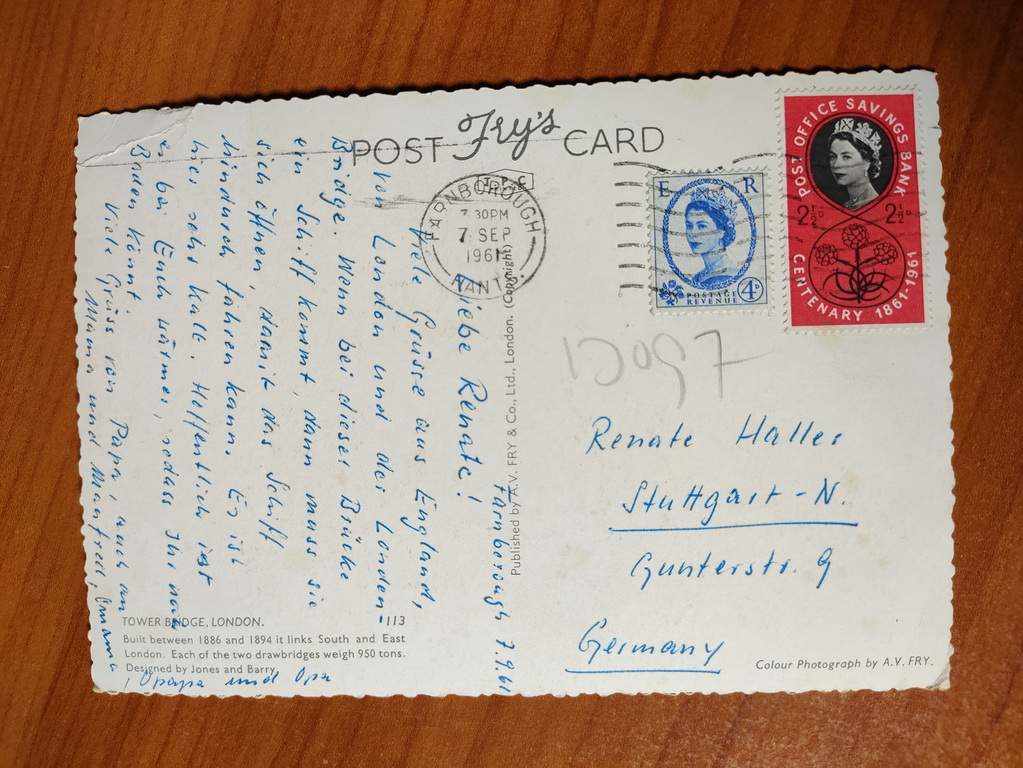 POST Fry's CARD
FARNBOROUGH
7 30PM
7 SEP
1961
HANTS.
E R
POSTAGE
REVENUE
4D
POST OFFICE SAVINGS BANK
2½D 2½D
CENTENARY 1861-1961
Farnborough 7.9.61
Liebe Renate!
Viele Grüsse aus England,
von London und der London-
Bridge. Wenn bei dieser Brücke
ein Schiff kommt, dann muss sie
sich öffnen, damit das Schiff
hindurch fahren kann. Es ist
hier sehr kalt. Hoffentlich ist
es bei Euch wärmer, sodass Ihr noch
Baden könnt.
Viele Grüss von Papa, auch an
Mama und Manfred, Omama
, Opapa und Opa
Published by A.V. FRY & Co., Ltd., London. (Copyright)
Renate Haller
Stuttgart-N.
Gunterstr. 9
Germany
TOWER BRIDGE, LONDON. 113
Built between 1886 and 1894 it links South and East
London. Each of the two drawbridges weigh 950 tons.
Designed by Jones and Barry.
Colour Photograph by A.V. FRY.